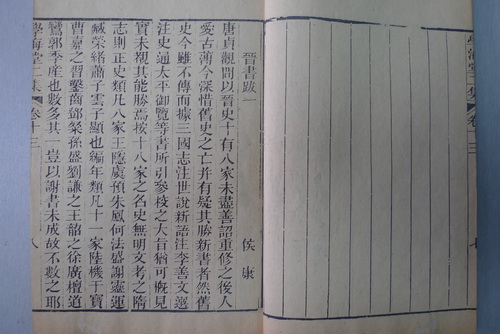 晉書跋一
侯康
唐貞觀間以晉史十有八家未盡善詔重修之後人
愛古薄今深惜舊史之亡并有疑其勝新書者然舊
史今雖不傳而據三國志注世說新語注李善文選
注史通太平御覽等書所引參校之大旨猶可槪見
實未視其能勝焉按十八家之名史無明文考之隋
志則正史類凡八家王隱虞預朱鳳何法盛謝靈運
臧榮緒蕭子雲子顯也編年類凡十一家陸機干寶
曹嘉之習鑿齒鄧粲孫盛劉謙之王韶之徐廣檀道
鸞郭季產也數多其一豈以謝書未成故不數之耶
學海堂二集
卷十三
八
學海堂二集
卷十三